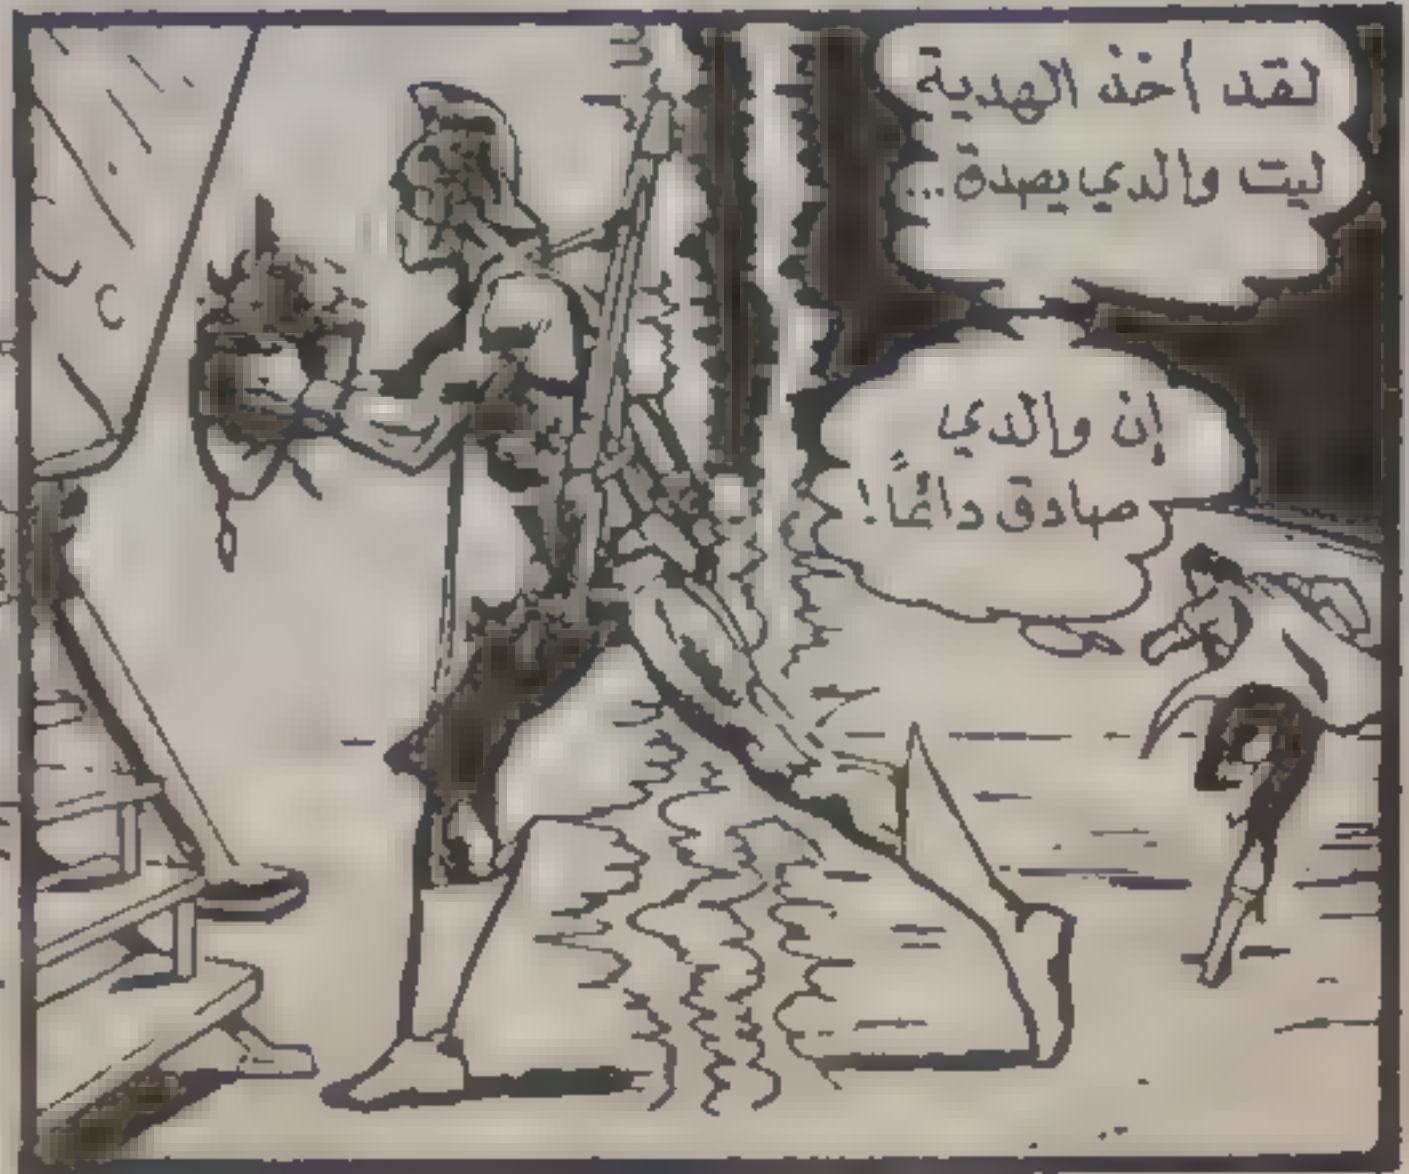 لقد أخذ الهدية
ليت والدي يصدق...
إن والدي
صادق دائمًا!